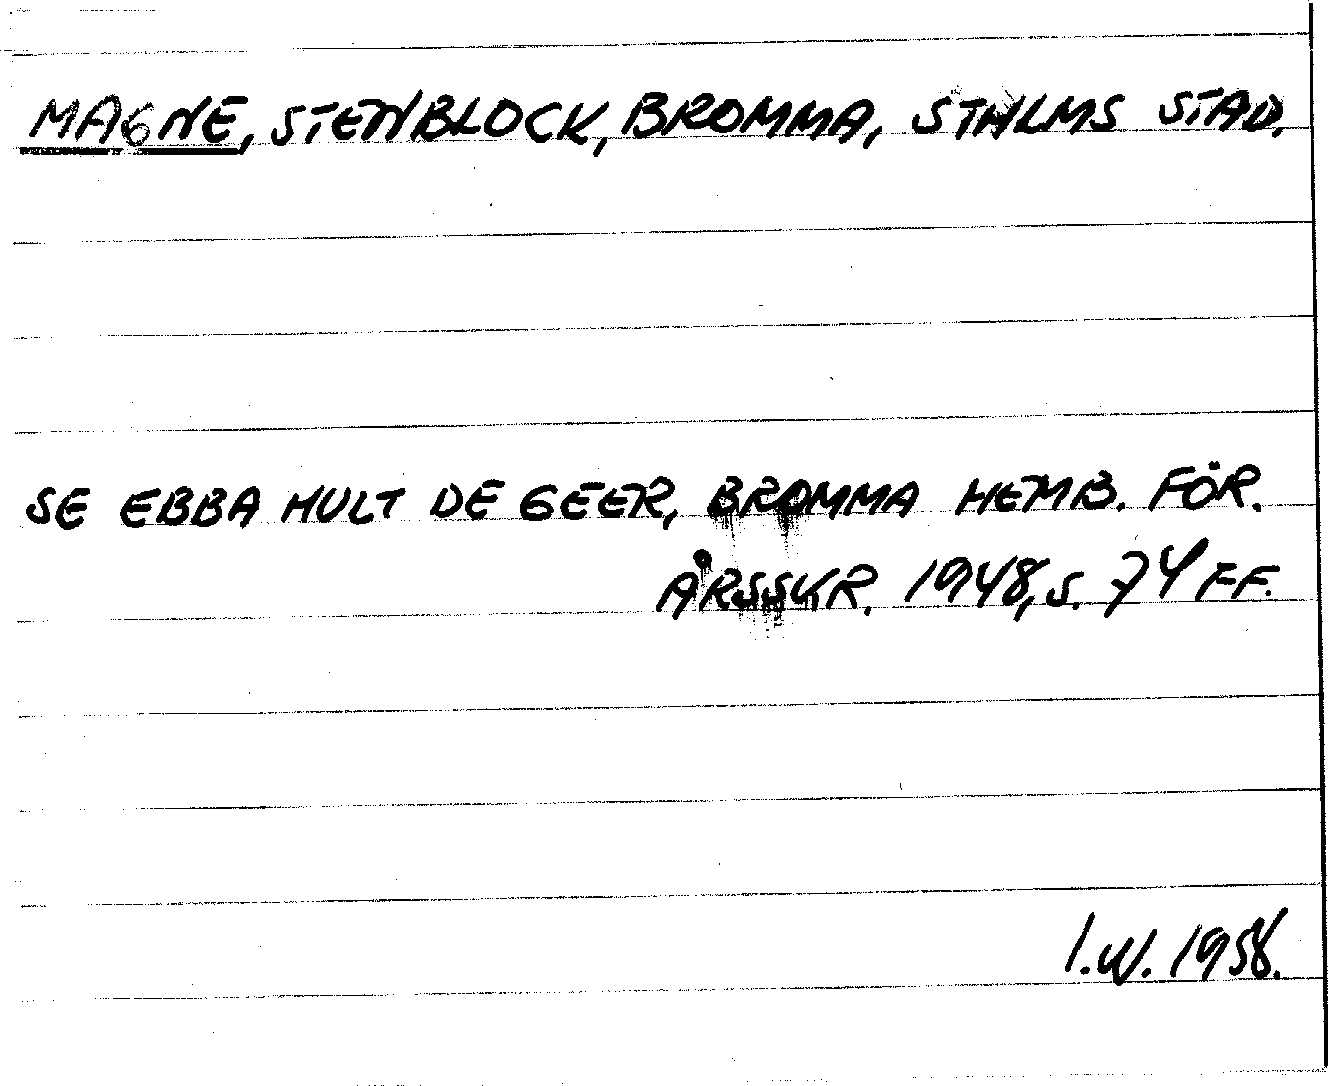 MAGNE, STENBLOCK, BROMMA, STHLMS STAD.
SE EBBA HULT DE GEER, BROMMA HEMB. FÖR.
ÅRSSKR. 1948, S. 74 FF.
I.W. 1958.